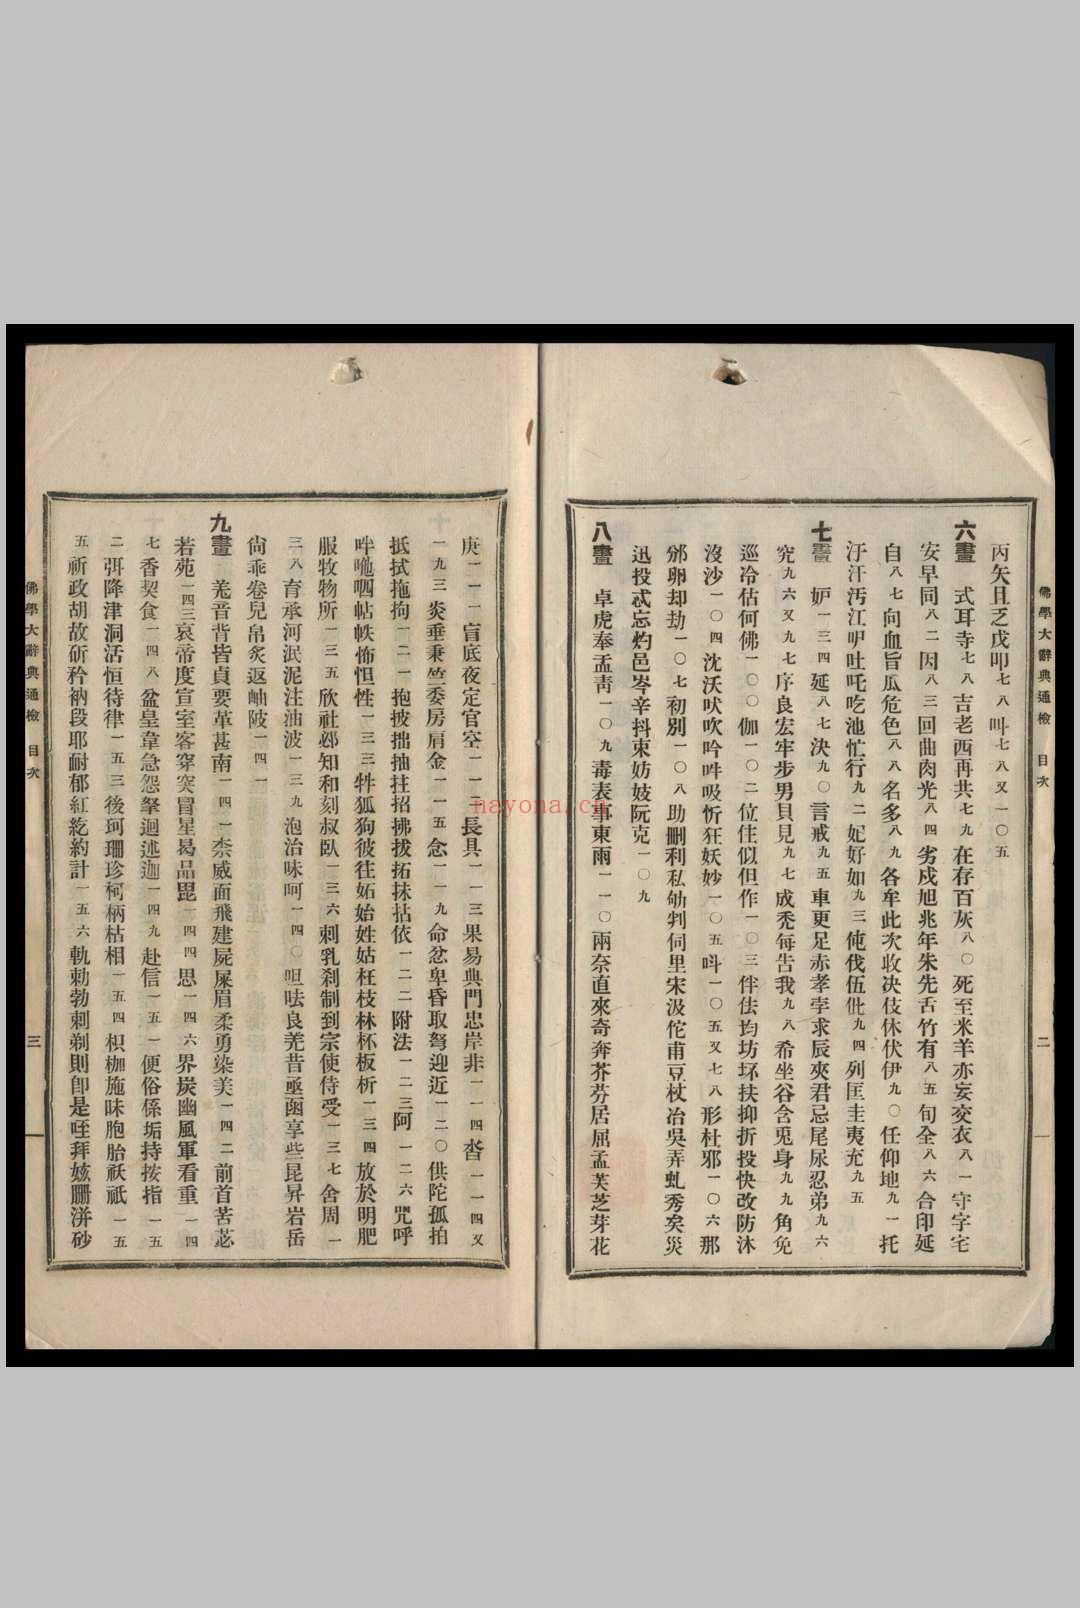 佛學大辭典通檢　目次　二
丙矢且乏戊叩七八叫七八又一〇五
六畫　式耳寺七八吉老西再共七九在存百灰八〇死至米羊亦妄交衣八一守字宅
安早同八二因八三回曲肉光八四劣戍旭兆年朱先舌竹有八五旬全八六合印延
自八七向血旨瓜危色八八名多八九各牟此次收决伎休伏伊九〇任仰地九一托
汙汗汚江吖吐吒吃池忙行九二妃好如九三伅伐伍仳九四列匡圭夷充九五
七畫　妒一三四延八七決九〇言戒九五車更足赤孝孛求辰夾君忌尾尿忍弟九六
究九六又九七序良宏牢步男貝見九七成秃每告我九八希坐谷含兎身九九角免
巡冷估何佛一〇〇伽一〇二位住似但作一〇三伴佉均坊坏扶抑折投快改防沐
沒沙一〇四沈沃吠吹吟吽吸忻狂妖妙一〇五呌一〇五又七八形杜邪一〇六那
邠卵却劫一〇七初別一〇八助刪利私劬判伺里宋汲佗甫豆杖冶吳弄虬秀矣災
迅投忒忘灼邑岑辛抖束妨妓阮克一〇九
八畫　卓虎奉孟靑一〇九毒表事東雨一一〇兩奈直來奇奔芥芬居屈孟芙芝芽花
庚一一一盲底夜定官空一一二長具一一三果易典門忠岸非一一四沓一一四又
一九三炎垂秉竺委房肩金一一五念一一九命忿卑昏取弩迎近一二〇供陀孤拍
抵拭拖拘一二一抱披拙抽拄招拂拔拓抹拈依一二二附法一二三阿一二六咒呼
呤咃呬帖帙怖怛性一三三牪狐狗彼往妬始姓姑枉枝林杯板析一三四放於明肥
服牧物所一三五欣社邲知和刻叔臥一三六刺乳刹制到宗使侍受一三七舍周一
三八育承河泯泥注油波一三九泡治味呵一四〇呾呿良羌昔亟函享些昆昇岩岳
尙乖卷兒帛炙返岫陂一四一
九畫　羌音背皆貞要革甚南一四一柰威面飛建屍屎眉柔勇染美一四二前首苦苾
若苑一四三哀帝度宣室客穿突冒星曷品毘一四四思一四六界炭幽風軍看重一四
七香契食一四八盆皇韋急怨拏迴逑迦一四九赴信一五一便俗係垢持按指一五
二弭降津洞活恒待律一五三後珂珊珍柯柄枯相一五四枳枷施昧胞胎祇祗一五
五祈政胡故斫矜衲段耶耐郁紅紇約計一五六軌勅勃刺剃則卽是咥拜姟姍洴砂
佛學大辭典通檢　目次　三
nayona.cn